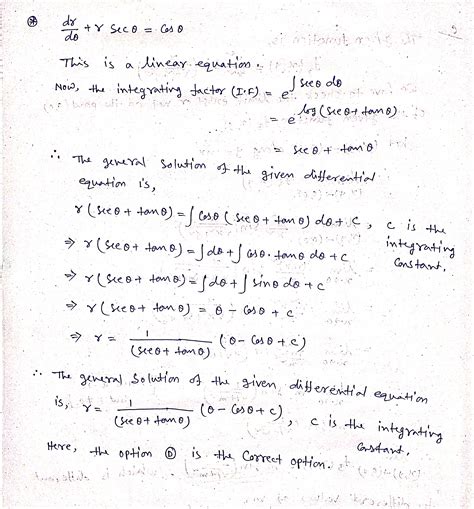 ⊛ dr/dθ + r Sec θ = Cos θ
This is a linear equation.
Now, the integrating factor (I.F) = e^∫ sec θ dθ
= e^log (sec θ + tan θ)
= sec θ + tan θ
∴ The general solution of the given differential
equation is,
r (sec θ + tan θ) = ∫ Cos θ (sec θ + tan θ) dθ + c, c is the
integrating
Constant.
⇒ r (sec θ + tan θ) = ∫ dθ + ∫ cos θ. tan θ dθ + c
⇒ r (sec θ + tan θ) = ∫ dθ + ∫ sin θ dθ + c
⇒ r (sec θ + tan θ) = θ - Cos θ + c
⇒ r = 1/(sec θ + tan θ) (θ - Cos θ + c)
∴ The general Solution of the given differential equation
is, r = 1/(sec θ + tan θ) (θ - Cos θ + c), c is the integrating
Constant.
Here, the option Ⓓ is the Correct option.